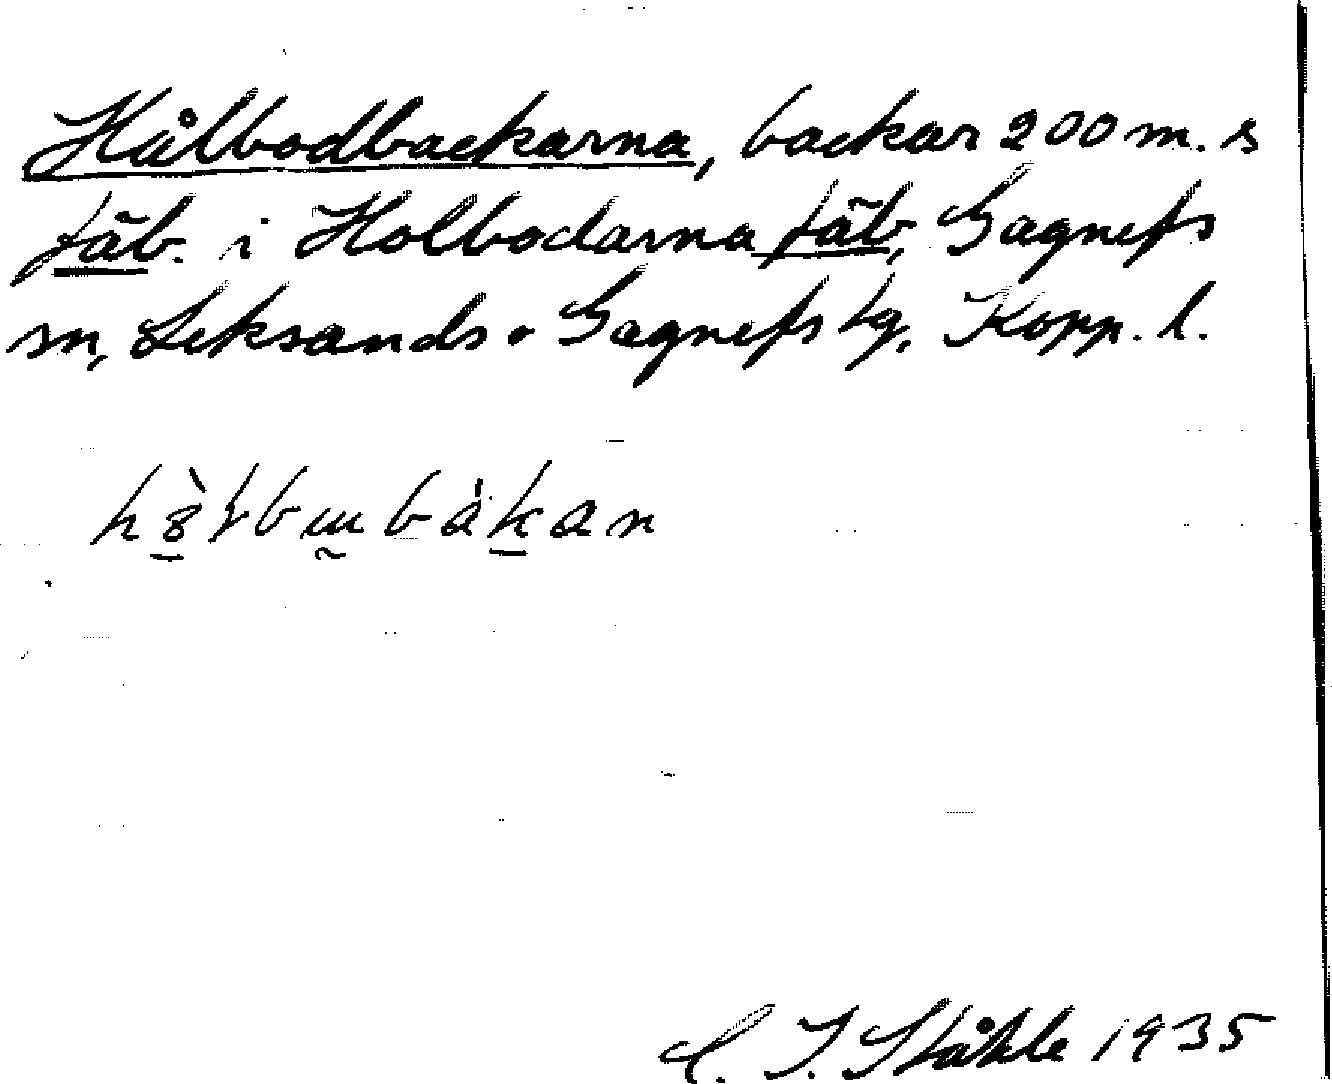 Hålbodbackarna, backar 200 m. s
fäb. i Holbodarna fäb, Gagnefs
sn, Leksands o Gagnefs tg, Kopp. l.
C. I. Ståhle 1935